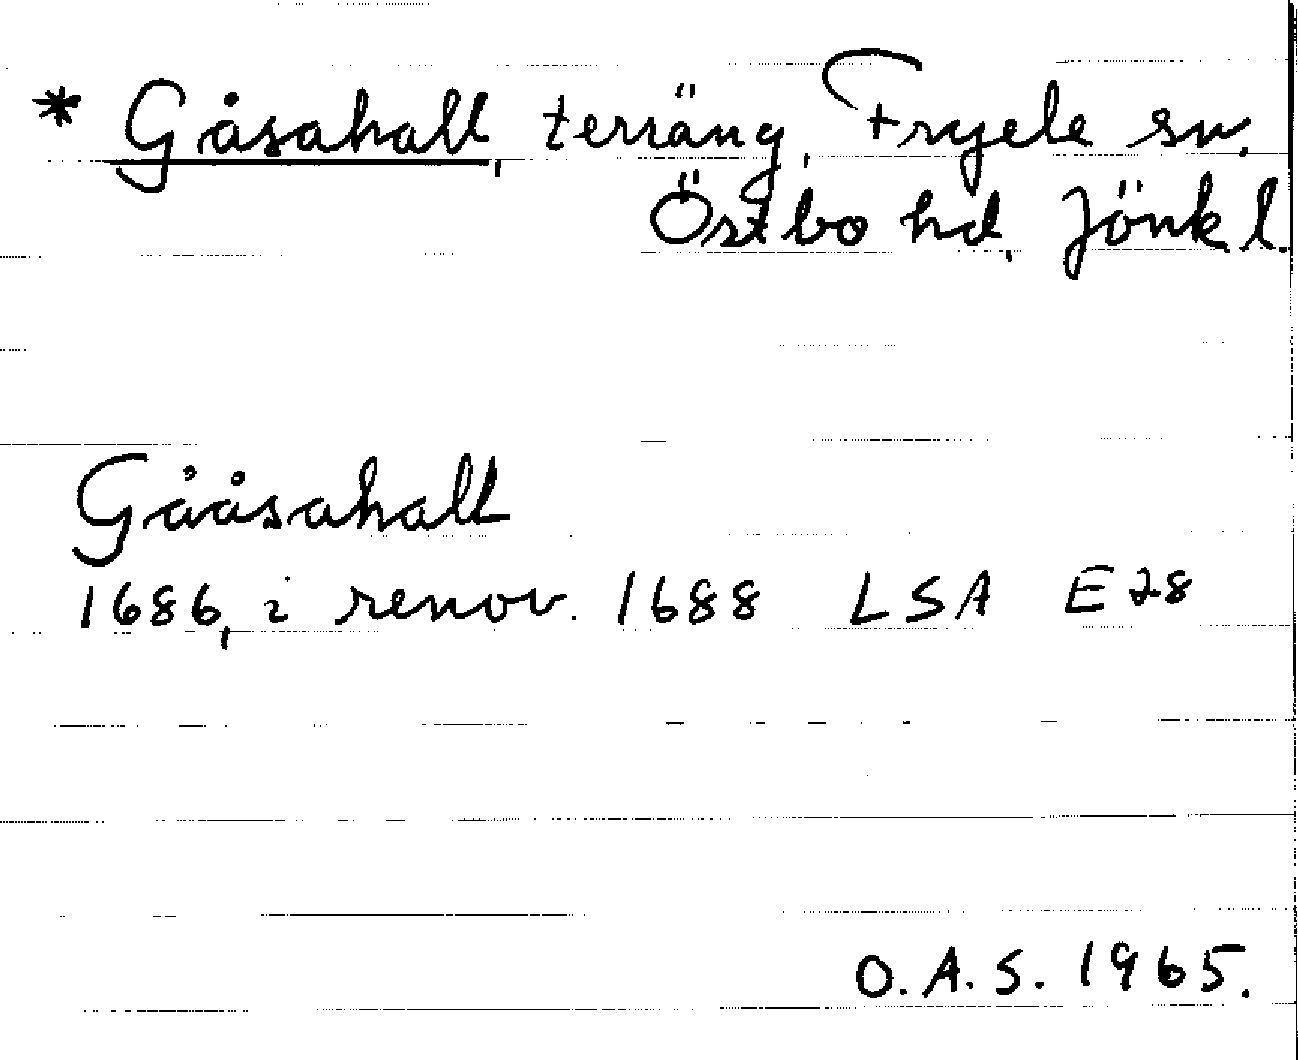 * Gåsahall, terräng, Fryele sn.
Östbo hd, Jönk l.
Gååsahall
1686, i renov. 1688 LSA E28
O.A.S. 1965.